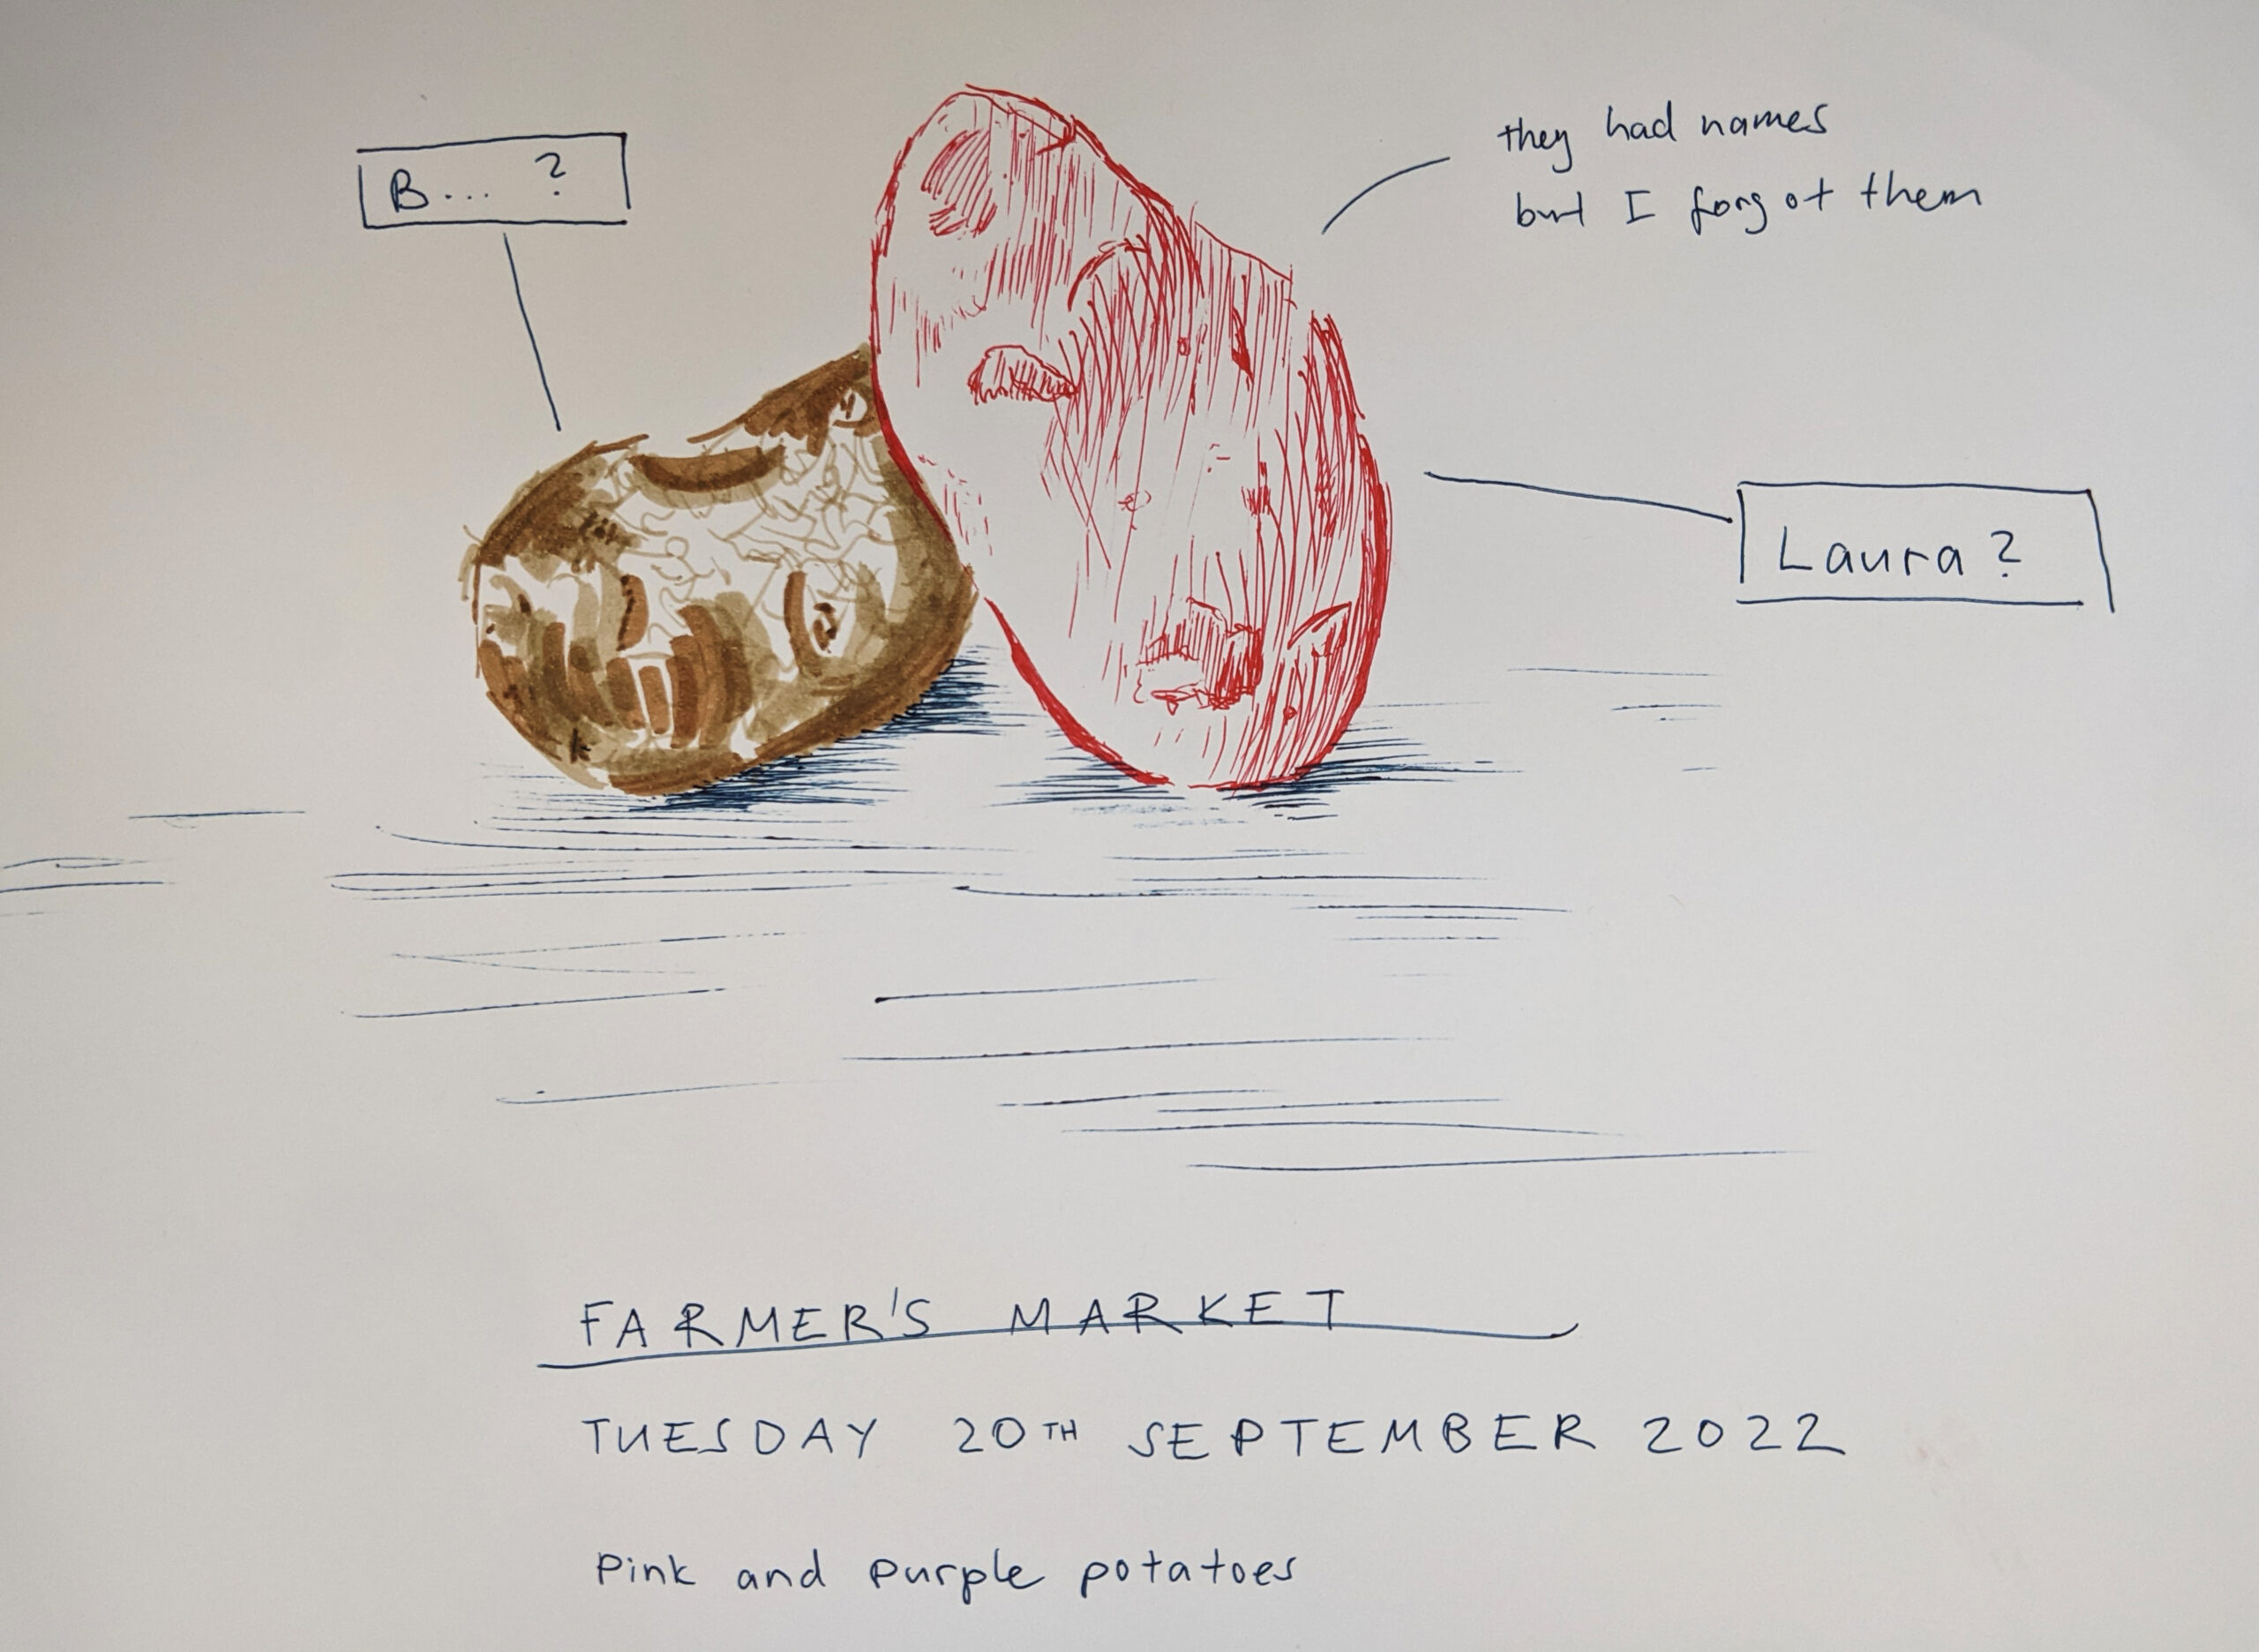 B... ?
they had names
but I forgot them
Laura?
FARMER'S MARKET
TUESDAY 20TH SEPTEMBER 2022
Pink and purple potatoes